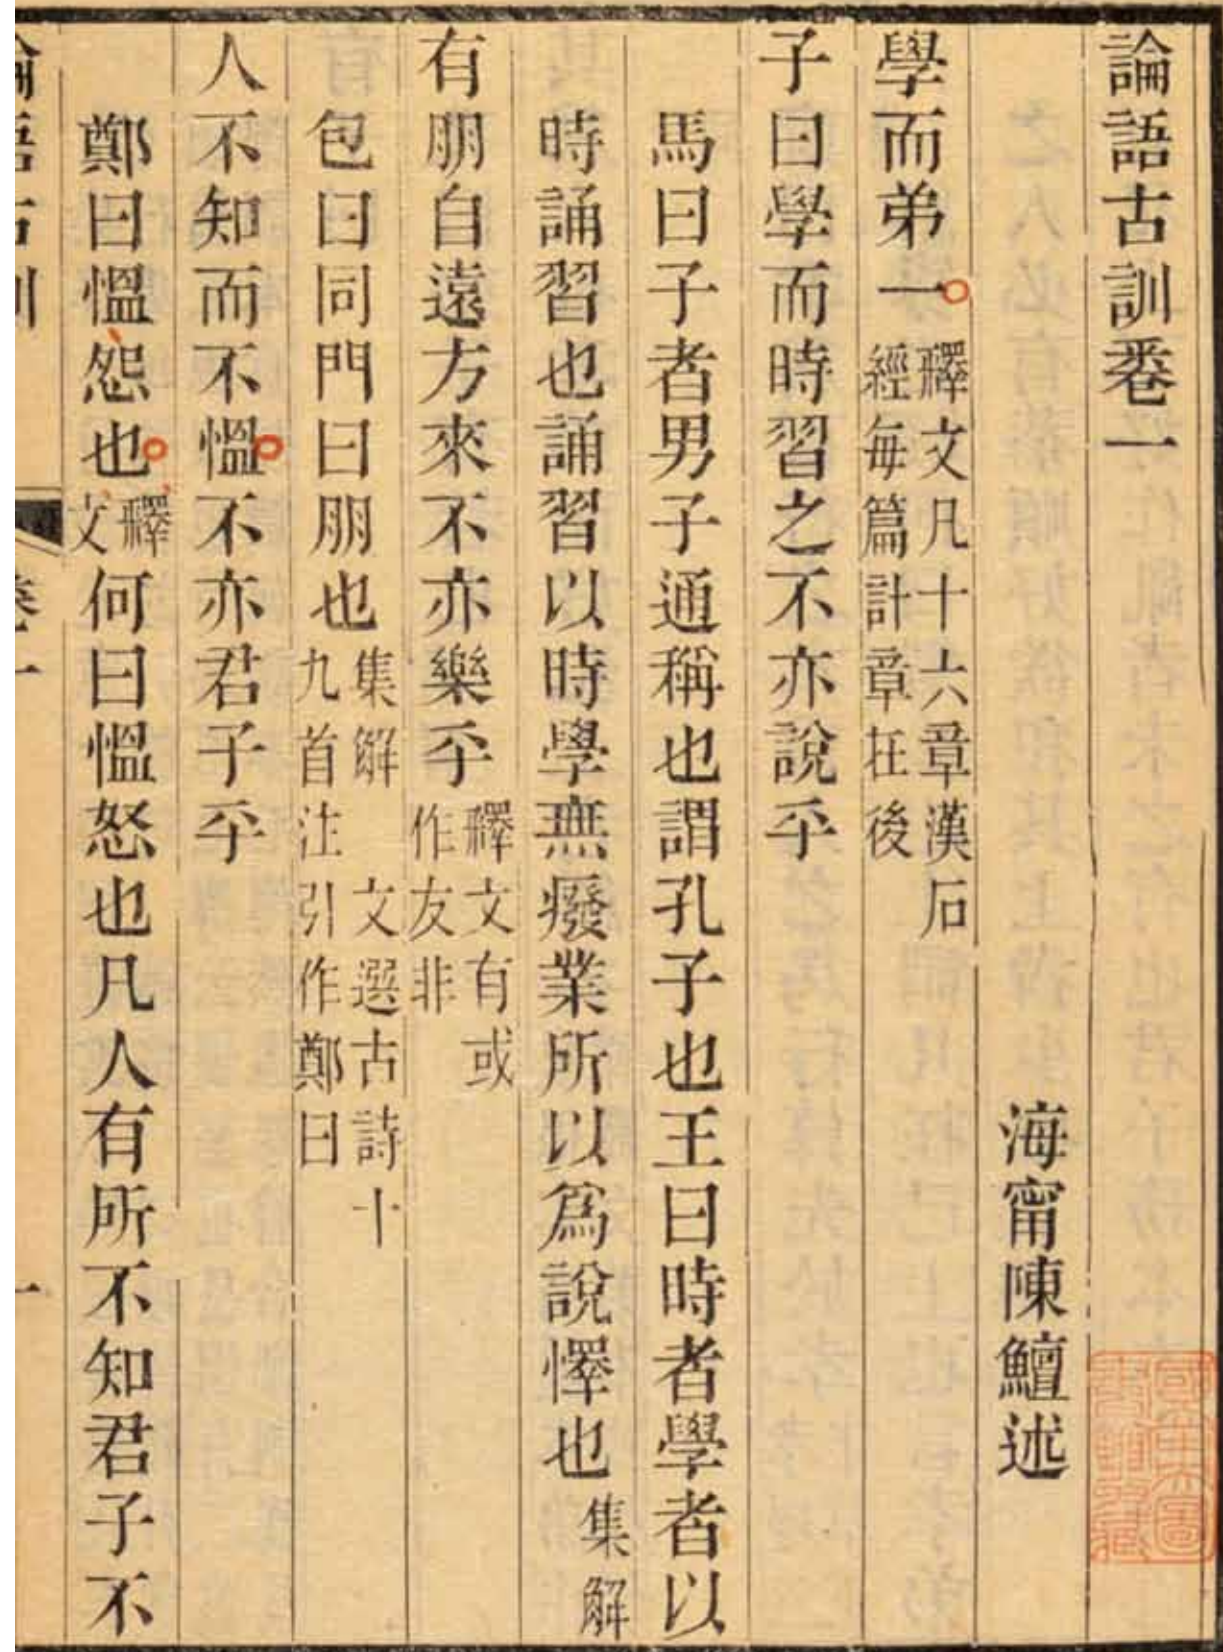 論語古訓卷一
海甯陳鱣述
學而弟一
釋文凡十六章漢石
經每篇計章在後
子曰學而時習之不亦說乎
馬曰子者男子通稱也謂孔子也王曰時者學者以
時誦習也誦習以時學無廢業所以爲說懌也
集解
有朋自遠方來不亦樂乎
釋文有或
作友非
包曰同門曰朋也
集解 文選古詩十
九首注引作鄭曰
人不知而不慍不亦君子乎
鄭曰慍怨也
釋
文
何曰慍怒也凡人有所不知君子不
論語古訓 卷一 一